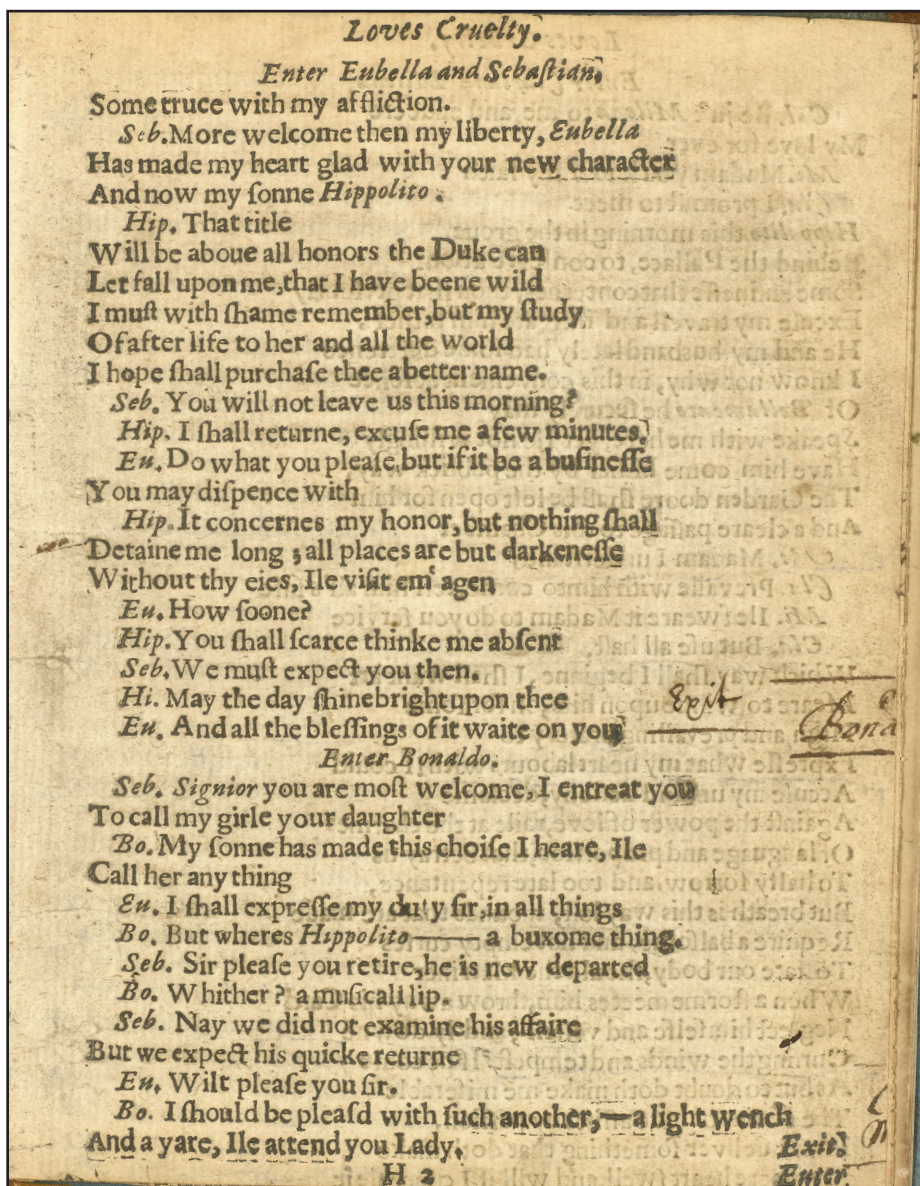 Loves Cruelty.
Enter Eubella and Sebaſtian,
Some truce with my affliction.
Seb. More welcome then my liberty, Eubella
Has made my heart glad with your new character
And now my ſonne Hippolito.
Hip. That title
Will be aboue all honors the Duke can
Let fall upon me, that I have beene wild
I muſt with ſhame remember, but my ſtudy
Of after life to her and all the world
I hope ſhall purchaſe thee a better name.
Seb. You will not leave us this morning?
Hip. I ſhall returne, excuſe me a few minutes.
Eu. Do what you pleaſe, but if it be a buſineſſe
You may diſpence with
Hip. It concernes my honor, but nothing ſhall
Detaine me long ; all places are but darkeneſſe
Without thy eies, Ile viſit em' agen
Eu. How ſoone?
Hip. You ſhall ſcarce thinke me abſent
Seb. We muſt expect you then.
Hi. May the day ſhine bright upon thee
Exit
Eu. And all the bleſſings of it waite on you
Bona
Enter Bonaldo.
Seb. Signior you are moſt welcome, I entreat you
To call my girle your daughter
Bo. My ſonne has made this choiſe I heare, Ile
Call her any thing
Eu. I ſhall expreſſe my duty ſir, in all things
Bo. But wheres Hippolito —— a buxome thing.
Seb. Sir pleaſe you retire, he is new departed
Bo. Whither? a muſicall lip.
Seb. Nay we did not examine his affaire
But we expect his quicke returne
Eu. Wilt pleaſe you ſir.
Bo. I ſhould be pleaſd with ſuch another,— a light wench
And a yare, Ile attend you Lady. Exit.
H 2 Enter